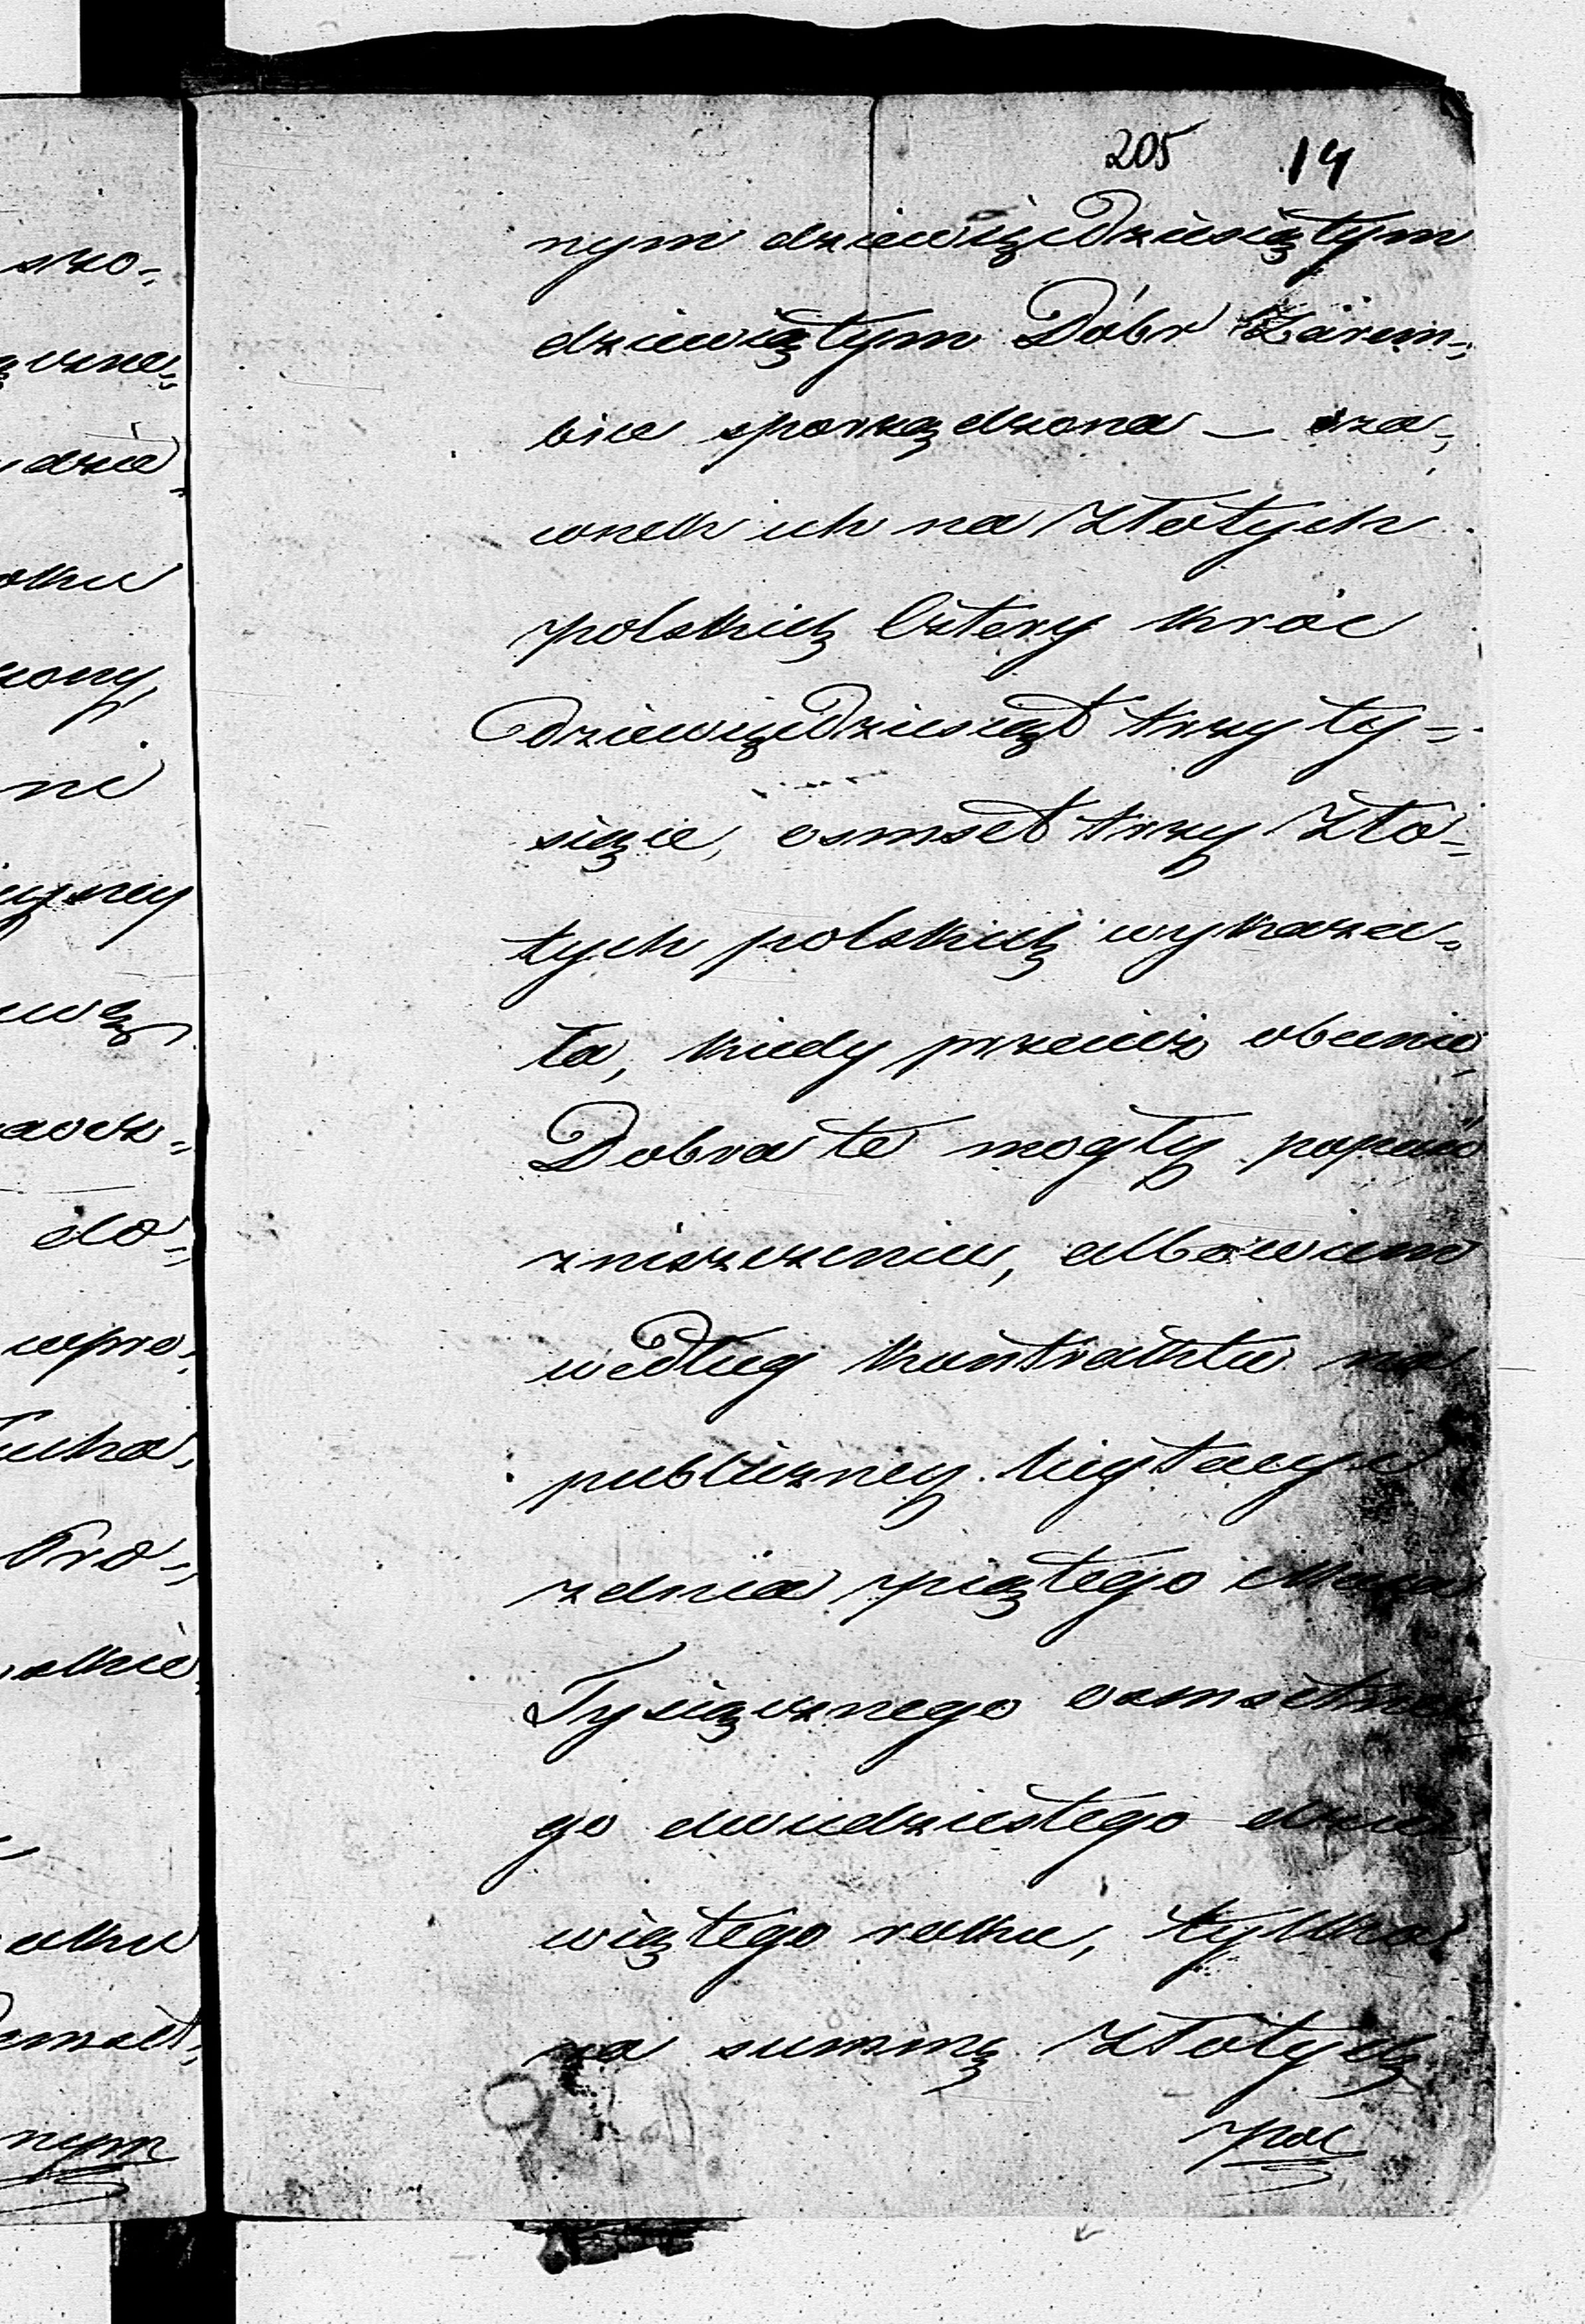 205 14
nym dziewięćdziesiątym
dziewiątym Dóbr Zarem-
bice sporządzona — sza-
cunek ich na złotych
polskich Cztery kroć
dziewięćdziesiąt trzy ty-
siące, osmset trzy zło-
tych polskich wykaza-
ła, kiedy przecież obecnie
Dobra te mogły popaść
zniszczeniu, albowiem
według kontraktu na
publiczney licytacyi
z dnia piątego
Tysiącznego osmsetne-
go dwudziestego dzie-
wiątego roku, tylko
za summę złotych
pol
szo-
czne-
dzie
oku
czony
ne
do-
wpro-
Pro-
nym